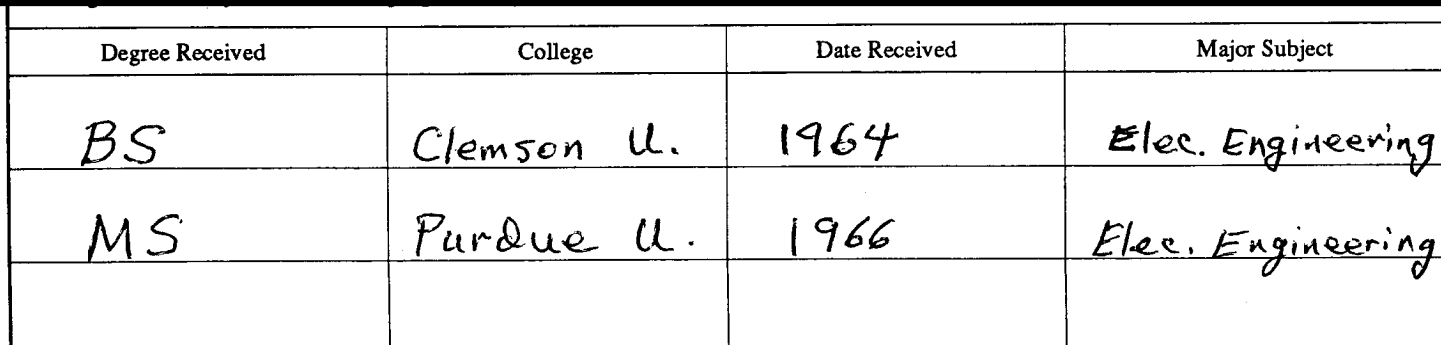 Degree Received College Date Received Major Subject
BS Clemson U. 1964 Elec. Engineering
MS Purdue U. 1966 Elec. Engineering